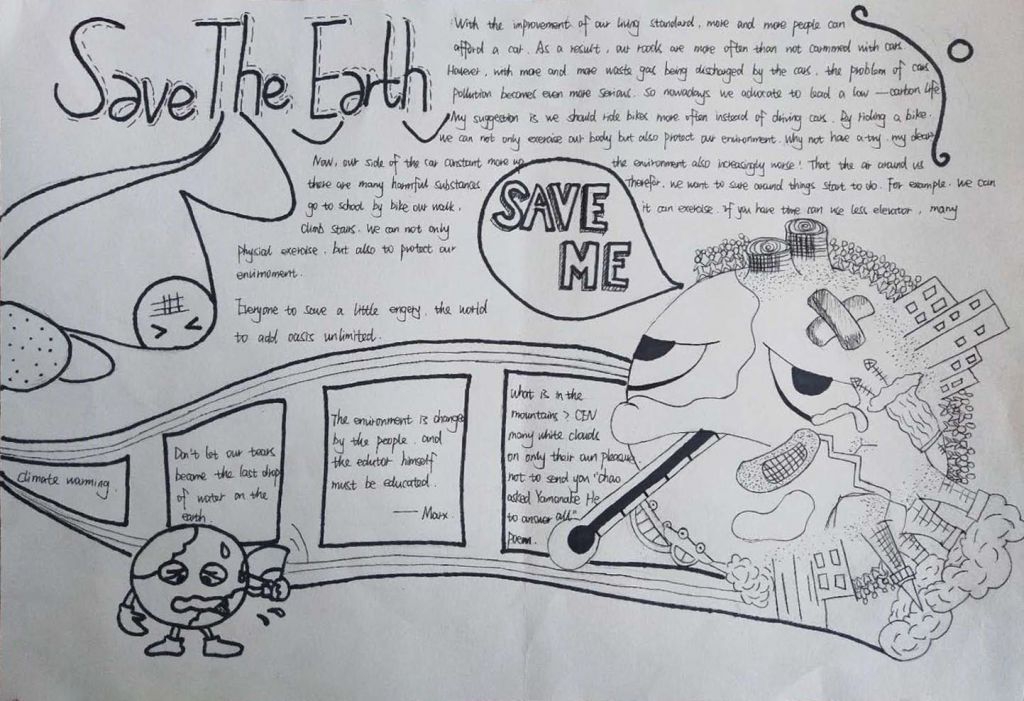 Save The Earth
With the improvement of our living standard, more and more people can
afford a car. As a result, our roads are more often than not cammed with cars.
However, with more and more waste gas being discharged by the cars, the problem of cars
pollution becomes even more serious. So nowadays we advocate to lead a low — carbon life
My suggestion is we should ride bikes more often instead of driving cars. By riding a bike.
we can not only exercise our body but also protect our environment. Why not have a try. my dear
Now, our side of the car constant more up, the environment also increasingly worse! That the air around us
there are many harmful substances Therefor, we want to save around things start to do. For example. We can
go to school by bike our walk, it can exercise. If you have time can use less elevator, many
Climb stairs. We can not only
physical exercise, but also to protect our
environment.
Everyone to save a little engery, the world
to add oasis unlimited.
SAVE
ME
climate warming.
Don't let our tears
become the last drop
of water on the
earth
The environment is changed
by the people, and
the edutor himself
must be educated.
—— Marx
What is in the
mountains? CEN
many white clouds
on only their own pleasure
not to send you "chao
asked Yamanake He
to answer all"
poem.